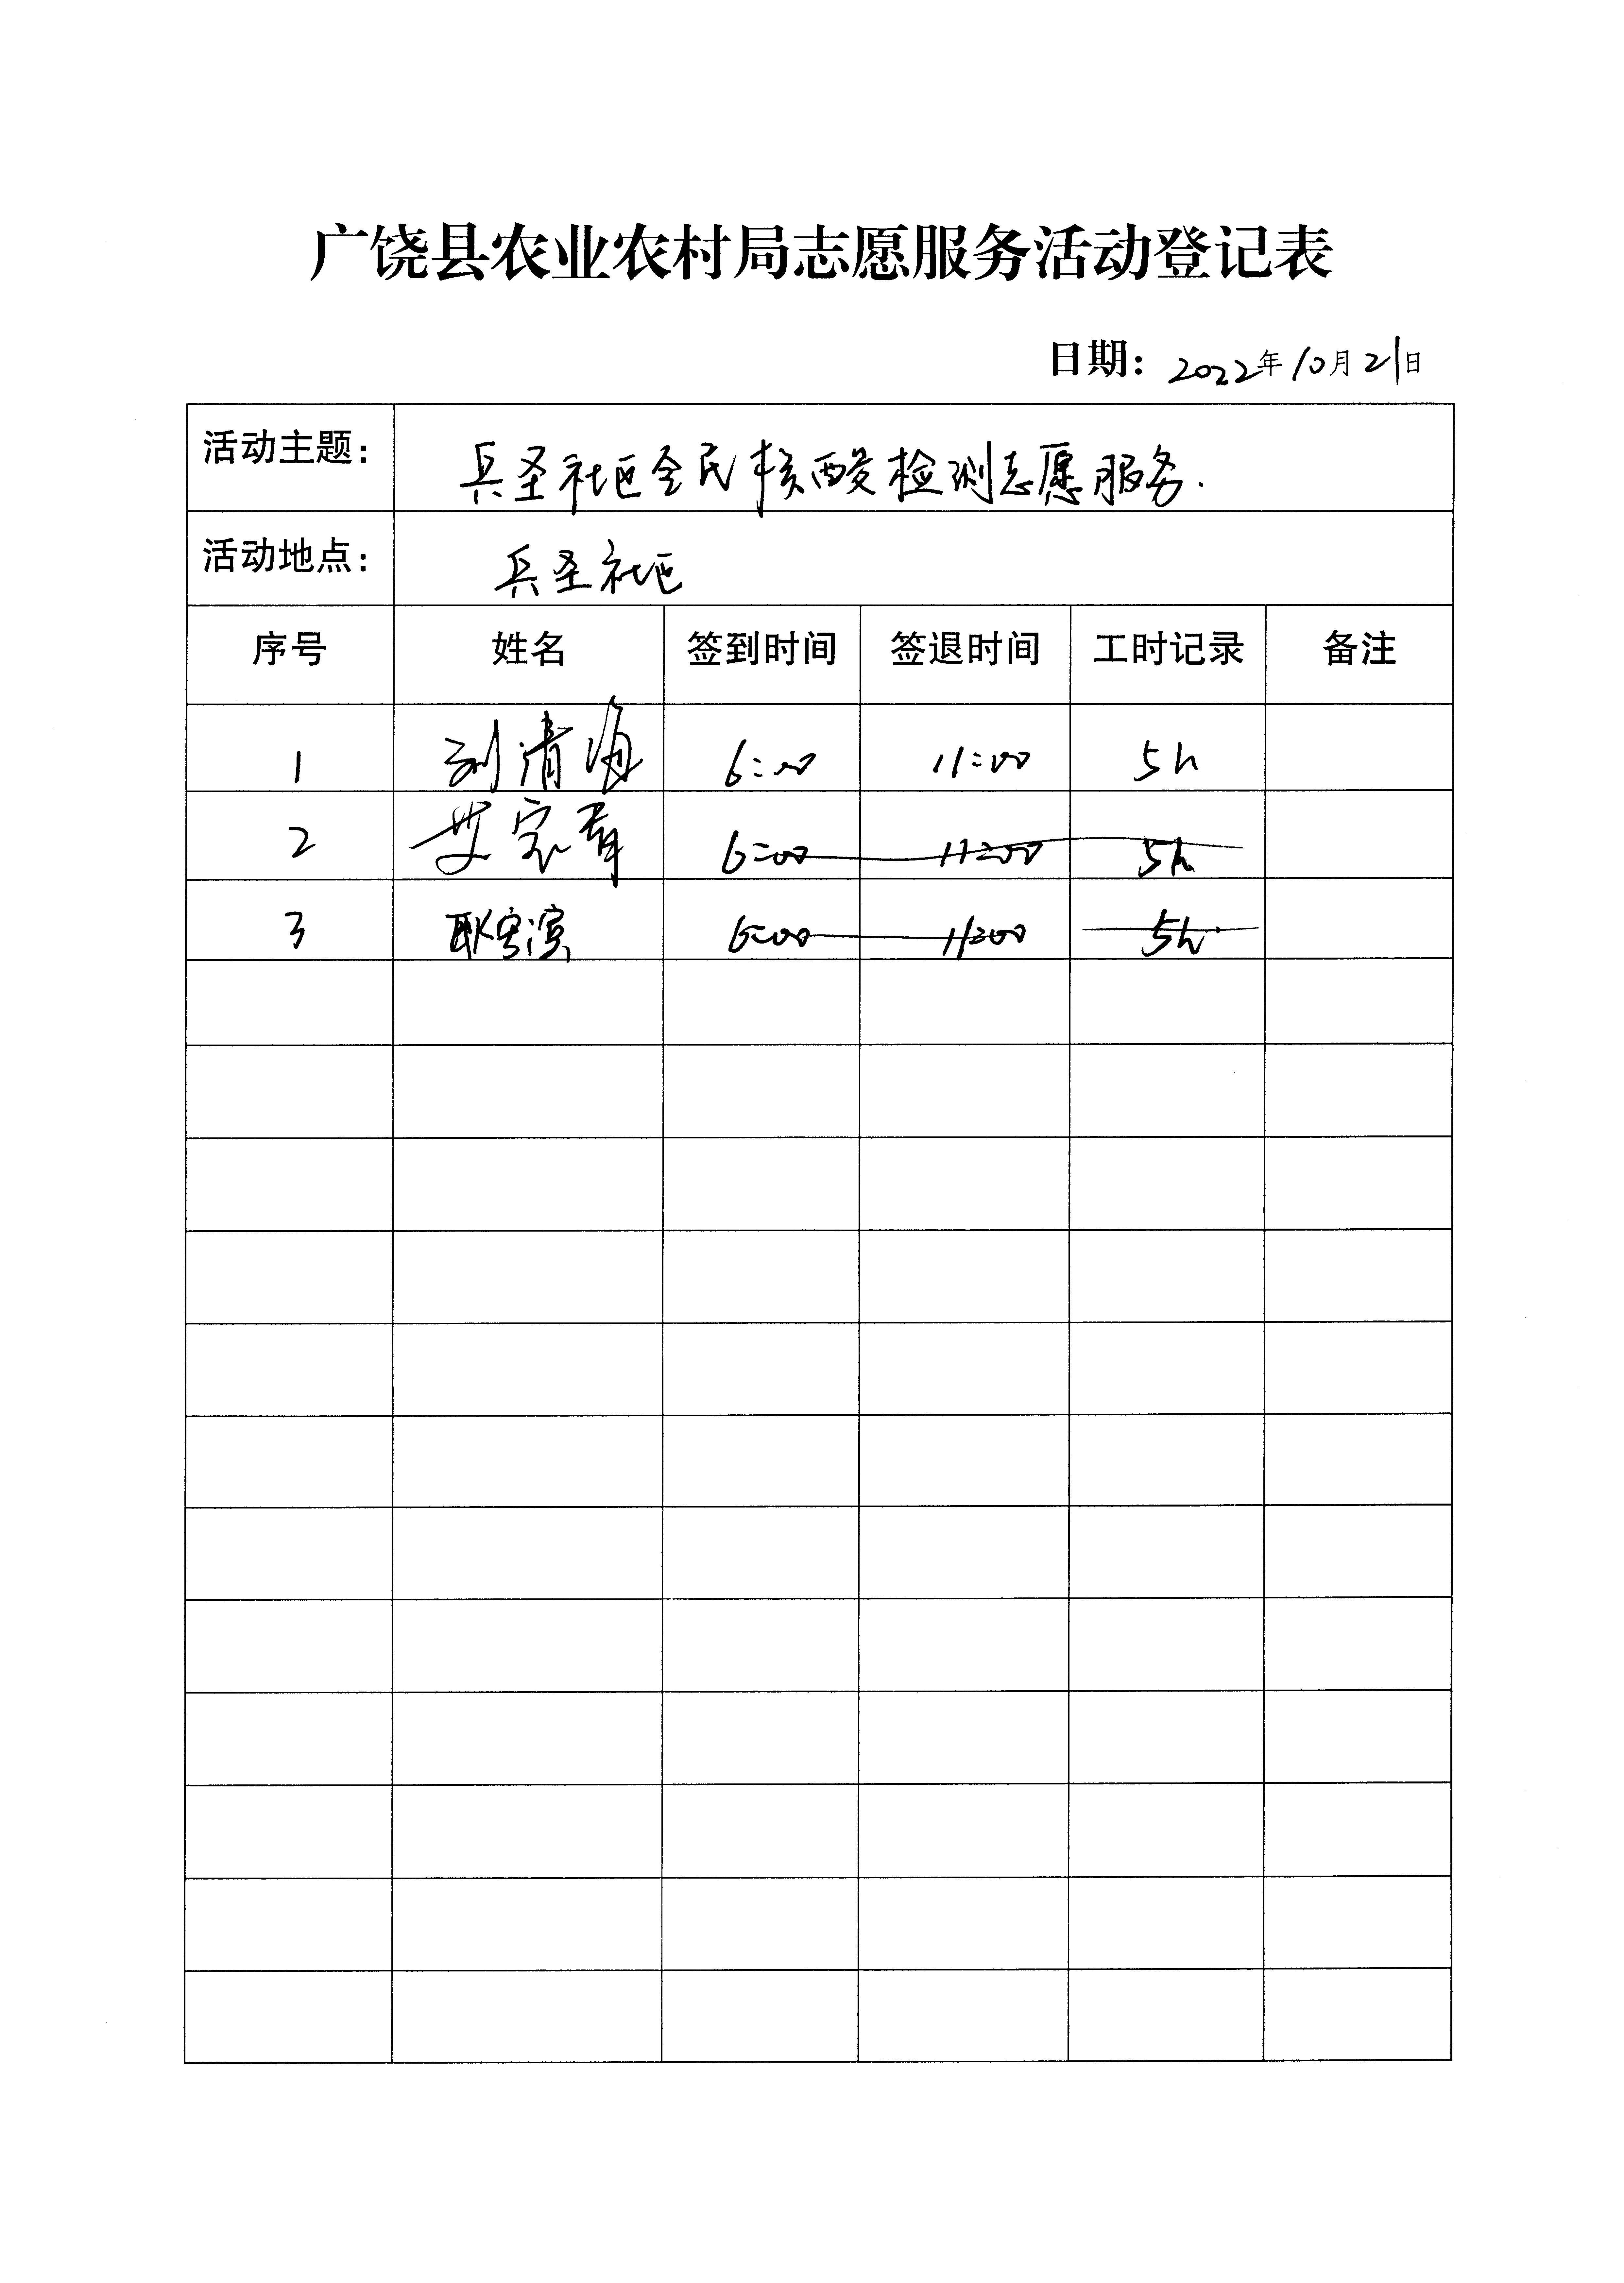 广饶县农业农村局志愿服务活动登记表
日期：2022年10月21日
活动主题： 兵圣社区全民核酸检测志愿服务.
活动地点： 兵圣社区
序号 姓名 签到时间 签退时间 工时记录 备注
1 刘清海 6:00 11:00 5h
2 6:00 11:00 5h
3 6:00 11:00 5h.